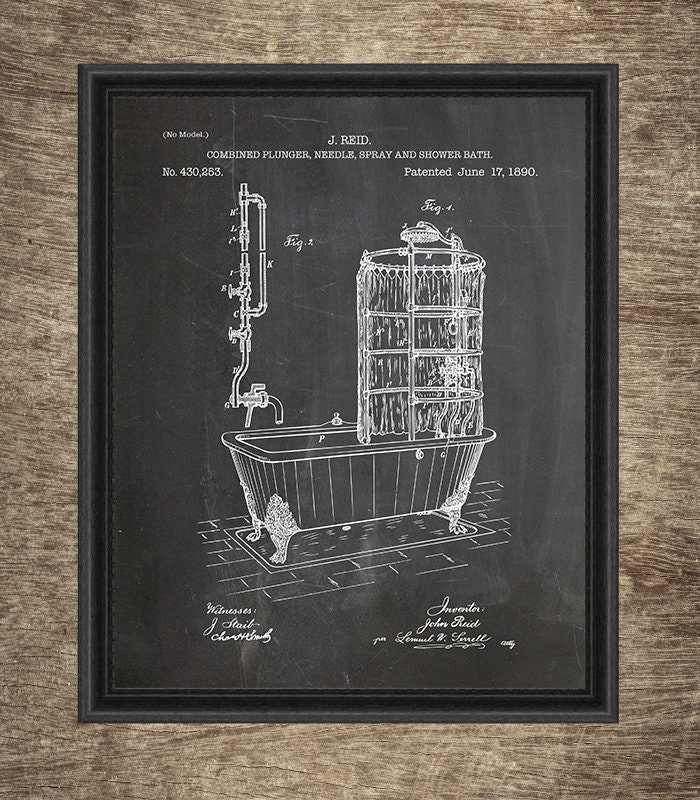 (No Model.)
J. REID.
COMBINED PLUNGER, NEEDLE, SPRAY AND SHOWER BATH.
No. 430,253.
Patented June 17, 1890.
Fig. 1.
Fig. 2.
H
L
I
K
E
C
B
D
G
J
M
P
G
Witnesses:
J Stait
Chas H Smith
Inventor:
John Reid
per Lemuel W. Serrell
atty